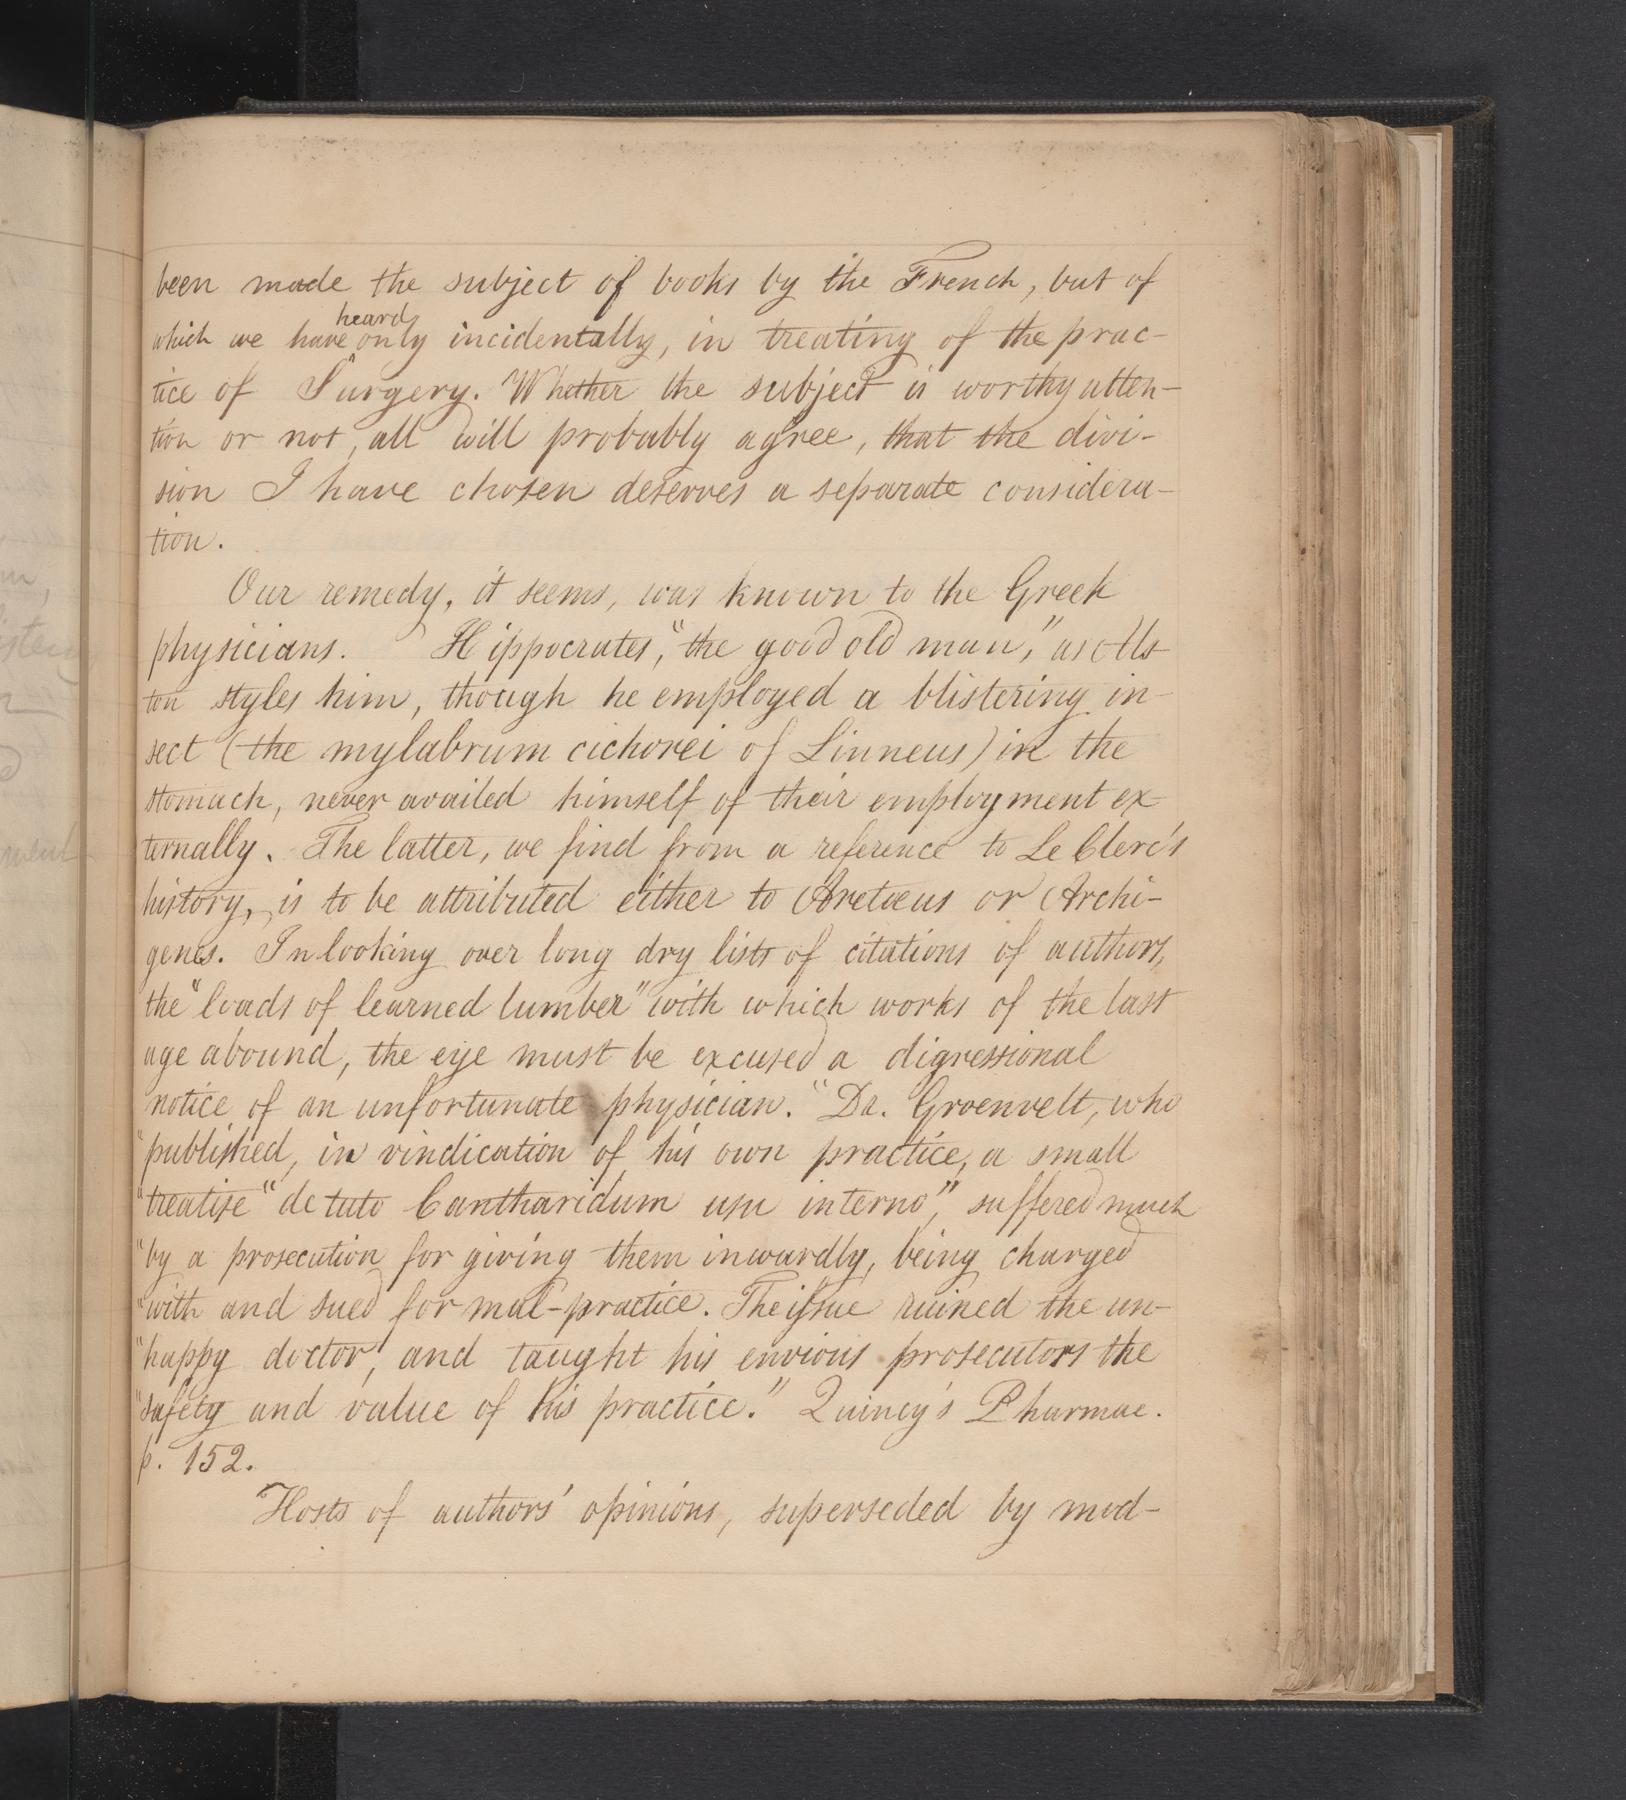 been made the subject of books by the French, but of
which we have heard only incidentally, in treating of the prac-
tice of Surgery. Whether the subject is worthy atten-
tion or not, all will probably agree, that the divi-
sion I have chosen deserves a separate considera-
tion.
Our remedy, it seems, was known to the Greek
physicians. Hippocrates, "the good old man," as Als-
ton styles him, though he employed a blistering in-
sect (the mylabrum cichorei of Linneus) in the
stomach, never availed himself of their employment ex-
ternally. The latter, we find from a reference to Le Clerc's
history, is to be attributed either to Aretæus or Archi-
genes. In looking over long dry lists of citations of authors,
the "loads of learned lumber" with which works of the last
age abound, the eye must be excused a digressional
notice of an unfortunate physician. "Dr. Groenvelt, who
"published, in vindication of his own practice, a small
"treatise "de tuto Cantharidum usu interno", suffered much
"by a prosecution for giving them inwardly, being charged
"with and sued for mal-practice. The issue ruined the un-
"happy doctor, and taught his envious prosecutors the
"safety and value of his practice." Quincy's Pharmac.
p. 152.
Hosts of authors' opinions, superseded by mod-